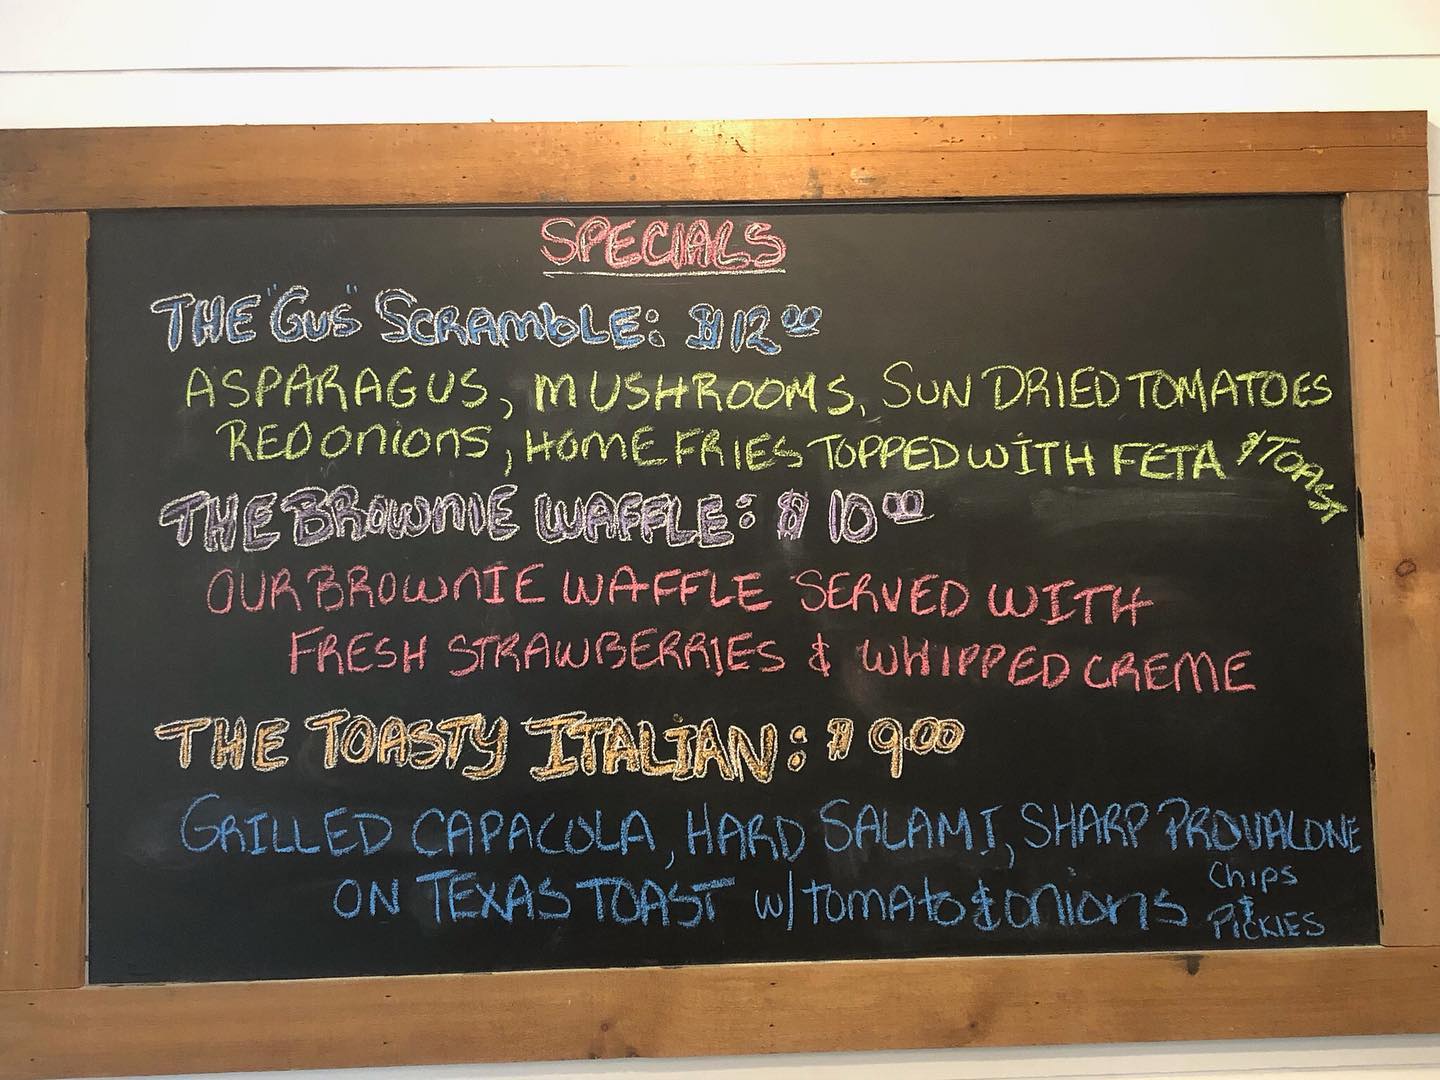 SPECIALS
THE "GUS" SCRAMBLE: $12.00
ASPARAGUS, MUSHROOMS, SUN DRIED TOMATOES
RED ONIONS, HOME FRIES TOPPED WITH FETA & TOAST
THE BROWNIE WAFFLE: $10.00
OUR BROWNIE WAFFLE SERVED WITH
FRESH STRAWBERRIES & WHIPPED CREME
THE TOASTY ITALIAN: $9.00
GRILLED CAPACOLA, HARD SALAMI, SHARP PROVALONE
ON TEXAS TOAST w/ TOMATO & ONIONS CHIPS & PICKLES